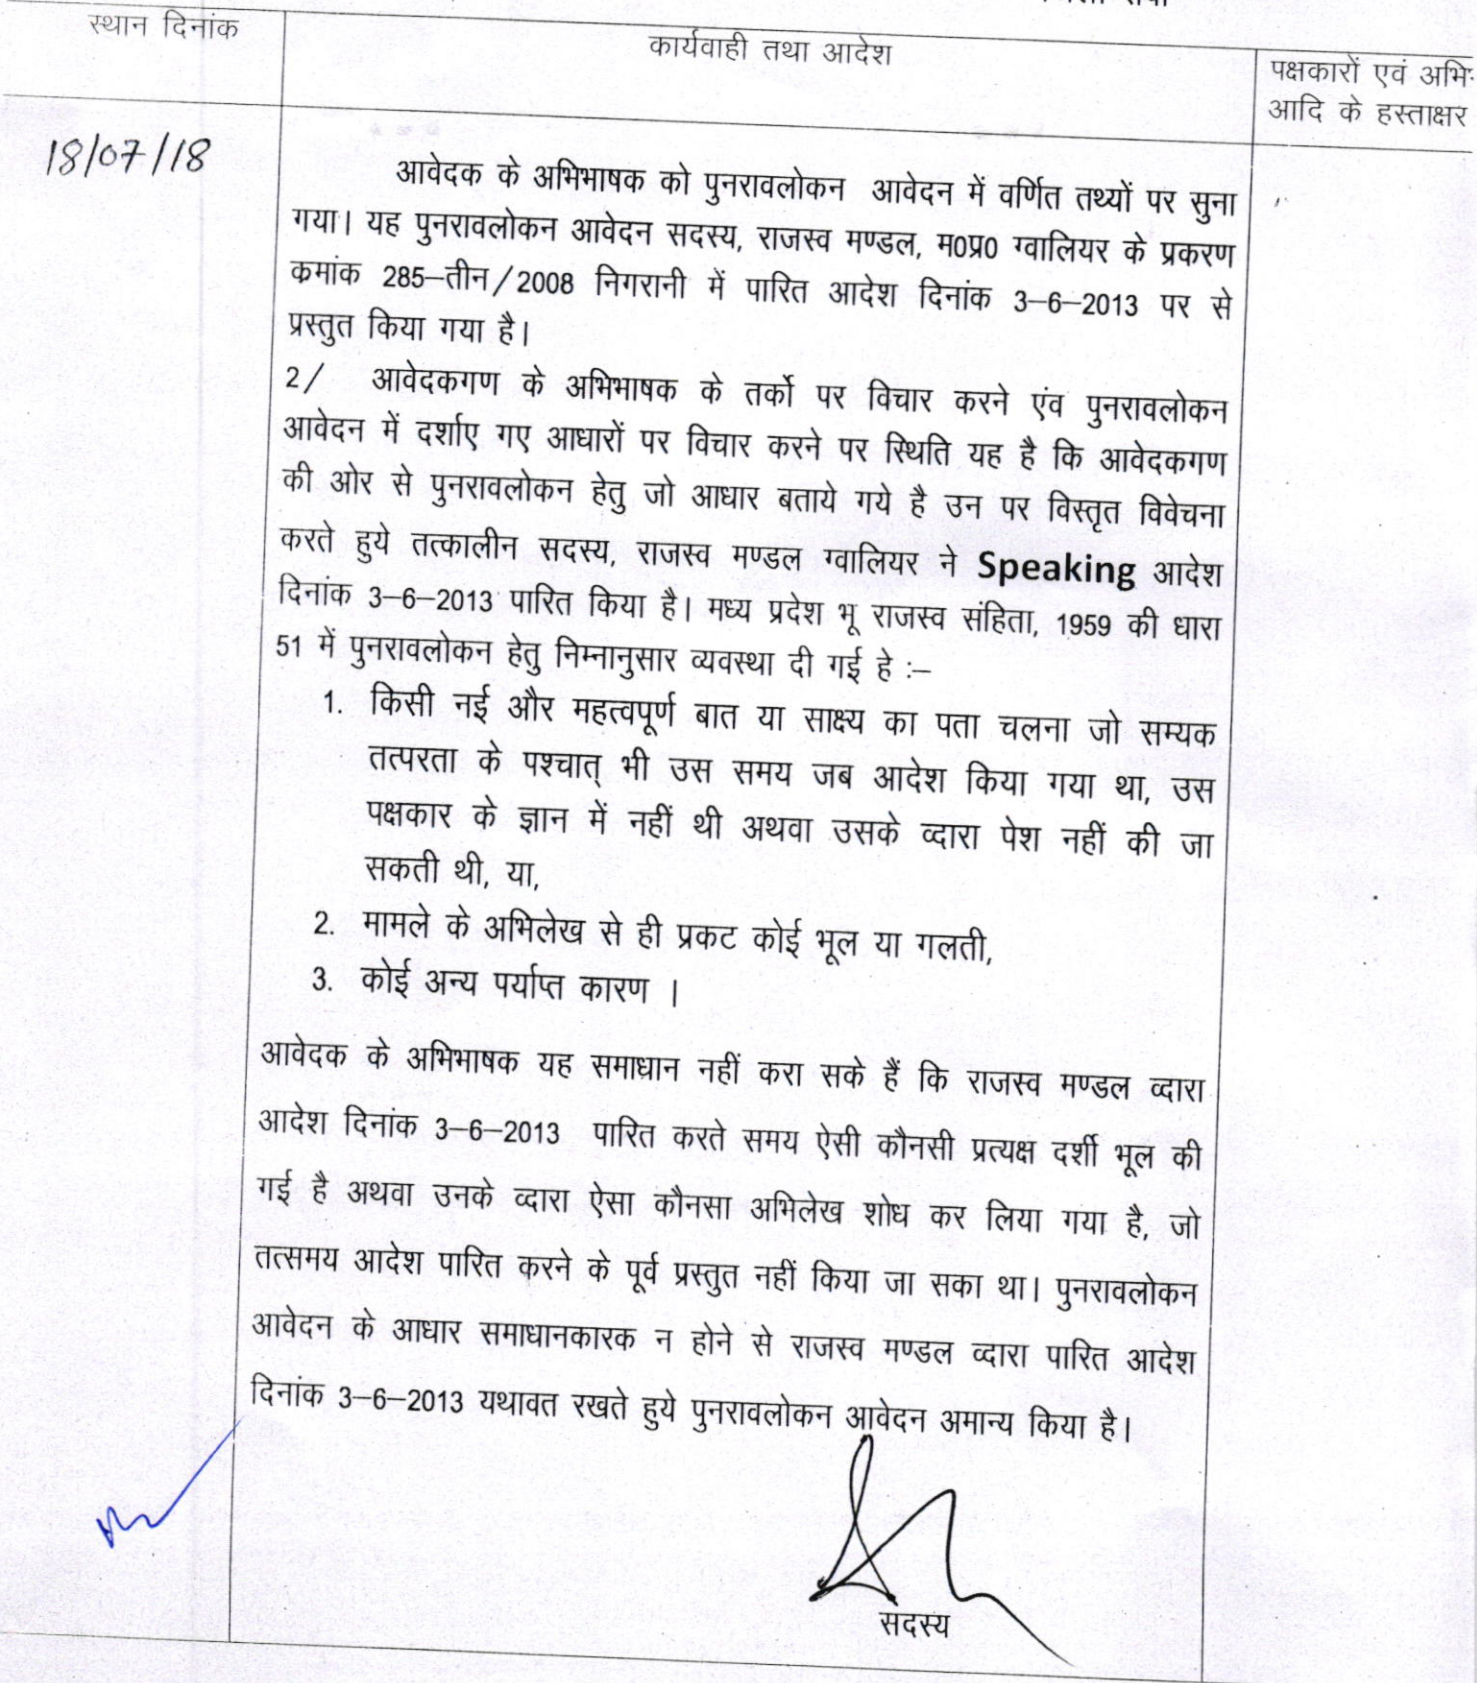 स्थान दिनांक
कार्यवाही तथा आदेश
पक्षकारों एवं अभि
आदि के हस्ताक्षर
18/07/18
आवेदक के अभिभाषक को पुनरावलोकन आवेदन में वर्णित तथ्यों पर सुना
गया। यह पुनरावलोकन आवेदन सदस्य, राजस्व मण्डल, म0प्र0 ग्वालियर के प्रकरण
कमांक 285–तीन/2008 निगरानी में पारित आदेश दिनांक 3–6–2013 पर से
प्रस्तुत किया गया है।
2/ आवेदकगण के अभिभाषक के तर्को पर विचार करने एंव पुनरावलोकन
आवेदन में दर्शाए गए आधारों पर विचार करने पर स्थिति यह है कि आवेदकगण
की ओर से पुनरावलोकन हेतु जो आधार बताये गये है उन पर विस्तृत विवेचना
करते हुये तत्कालीन सदस्य, राजस्व मण्डल ग्वालियर ने Speaking आदेश
दिनांक 3–6–2013 पारित किया है। मध्य प्रदेश भू राजस्व संहिता, 1959 की धारा
51 में पुनरावलोकन हेतु निम्नानुसार व्यवस्था दी गई हे :–
1. किसी नई और महत्वपूर्ण बात या साक्ष्य का पता चलना जो सम्यक
तत्परता के पश्चात् भी उस समय जब आदेश किया गया था, उस
पक्षकार के ज्ञान में नहीं थी अथवा उसके व्दारा पेश नहीं की जा
सकती थी, या,
2. मामले के अभिलेख से ही प्रकट कोई भूल या गलती,
3. कोई अन्य पर्याप्त कारण ।
आवेदक के अभिभाषक यह समाधान नहीं करा सके हैं कि राजस्व मण्डल व्दारा
आदेश दिनांक 3–6–2013 पारित करते समय ऐसी कौनसी प्रत्यक्ष दर्शी भूल की
गई है अथवा उनके व्दारा ऐसा कौनसा अभिलेख शोध कर लिया गया है, जो
तत्समय आदेश पारित करने के पूर्व प्रस्तुत नहीं किया जा सका था। पुनरावलोकन
आवेदन के आधार समाधानकारक न होने से राजस्व मण्डल व्दारा पारित आदेश
दिनांक 3–6–2013 यथावत रखते हुये पुनरावलोकन आवेदन अमान्य किया है।
सदस्य